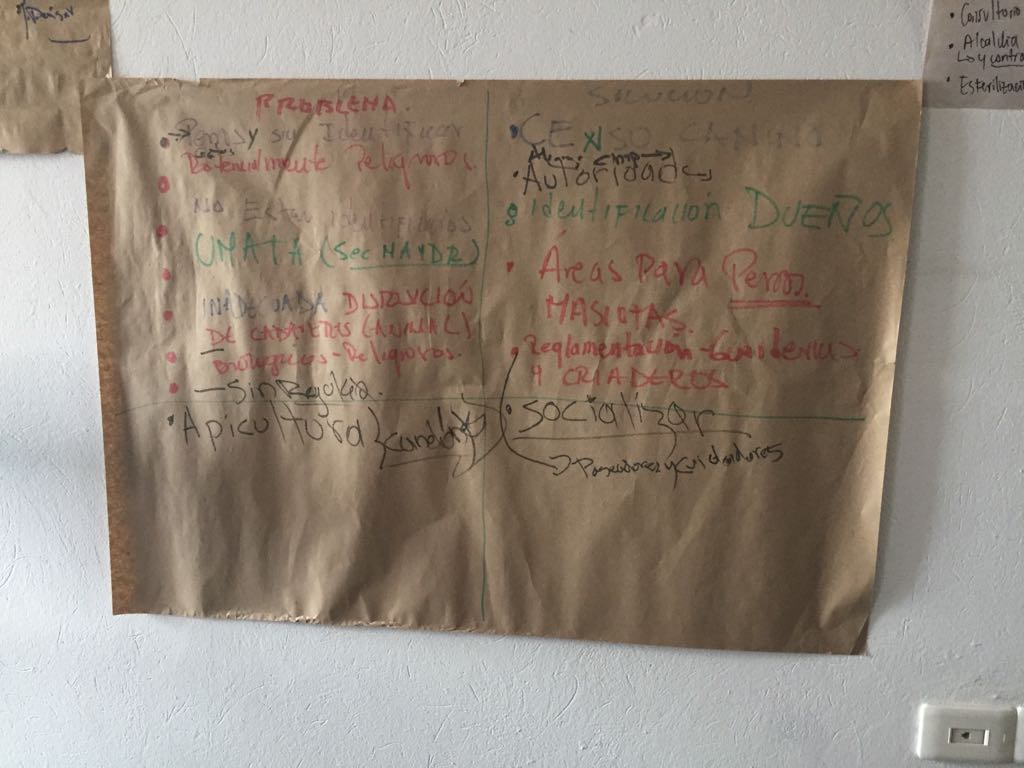 PROBLEMA.
Perros y sin Identificar
Potencialmente Peligrosos.
NO ESTAN identificados
UMATA (Sec MAYDR)
INADECUADA DISPOSICIÓN
DE CADAVERES (ANIMAL)
Biologicos - Peligrosos.
Apicultura
SOLUCION
CENSO CANINO
Autoridad
Identificación DUEÑOS
Áreas Para Perros.
MASCOTAS.
Reglamentación - Guarderias
Y CRIADEROS
Socializar
Paseadores y cuidadores
Consultorio
Alcaldia